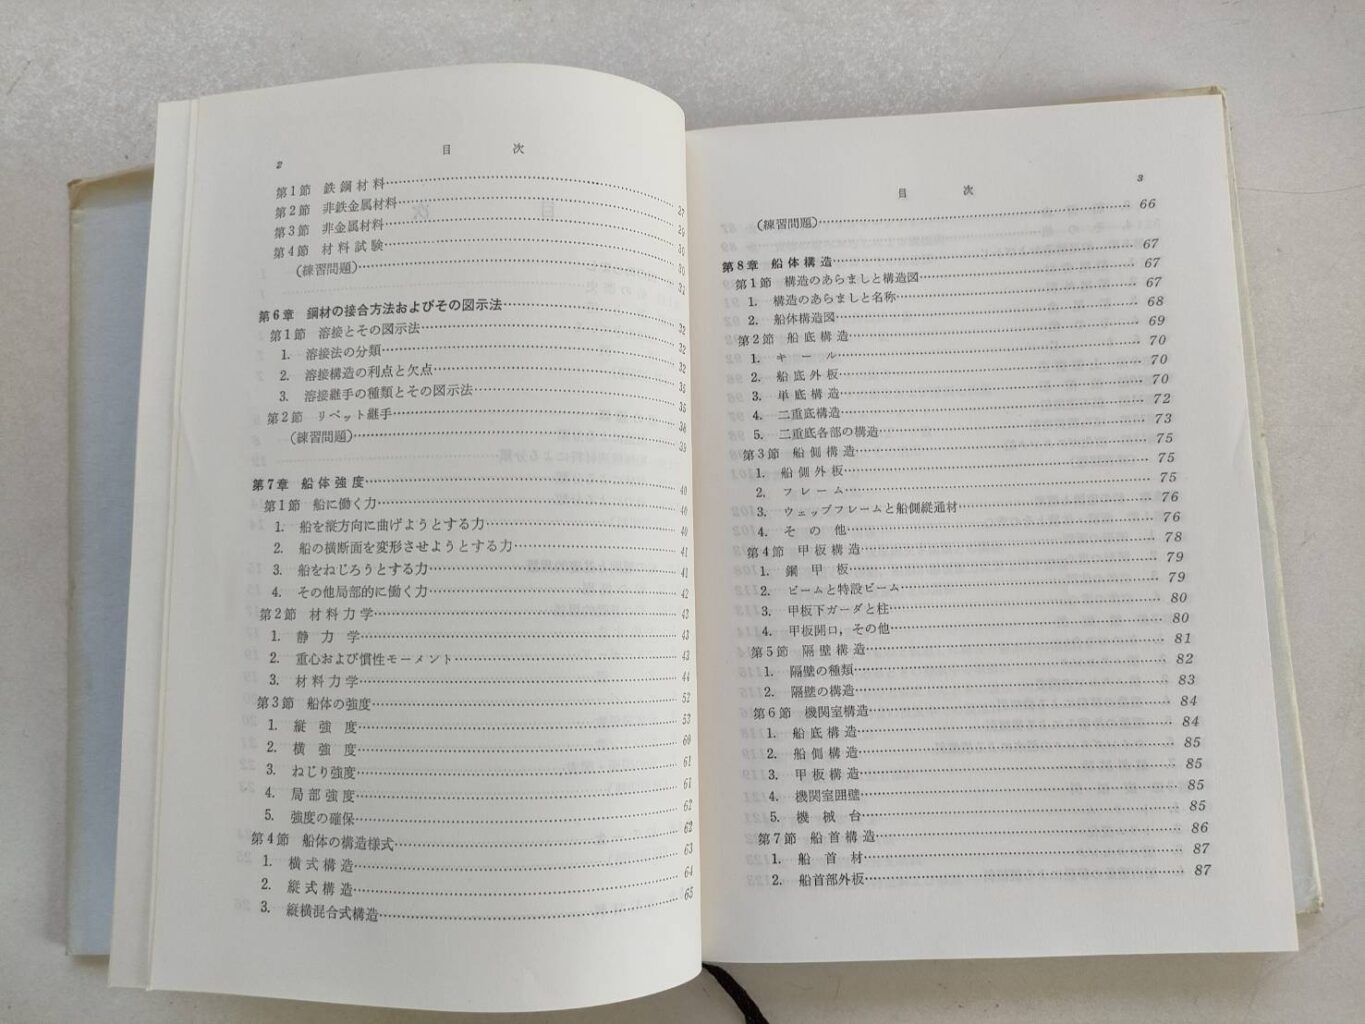 2
目 次
第1節 鉄鋼材料……27
第2節 非鉄金属材料……29
第3節 非金属材料……30
第4節 材料試験……30
(練習問題)……31
第6章 鋼材の接合方法およびその図示法……32
第1節 溶接とその図示法……32
1. 溶接法の分類……32
2. 溶接構造の利点と欠点……35
3. 溶接継手の種類とその図示法……35
第2節 リベット継手……38
(練習問題)……39
第7章 船体強度……40
第1節 船に働く力……40
1. 船を縦方向に曲げようとする力……40
2. 船の横断面を変形させようとする力……41
3. 船をねじろうとする力……41
4. その他局部的に働く力……42
第2節 材料力学……43
1. 静力学……43
2. 重心および慣性モーメント……43
3. 材料力学……44
第3節 船体の強度……52
1. 縦強度……53
2. 横強度……60
3. ねじり強度……61
4. 局部強度……61
5. 強度の確保……62
第4節 船体の構造様式……62
1. 横式構造……63
2. 縦式構造……64
3. 縦横混合式構造……65
目 次
3
(練習問題)……66
第8章 船体構造……67
第1節 構造のあらましと構造図……67
1. 構造のあらましと名称……67
2. 船体構造図……68
第2節 船底構造……69
1. キール……70
2. 船底外板……70
3. 単底構造……70
4. 二重底構造……72
5. 二重底各部の構造……73
第3節 船側構造……75
1. 船側外板……75
2. フレーム……75
3. ウェッブフレームと船側縦通材……76
4. その他……76
第4節 甲板構造……78
1. 鋼甲板……79
2. ビームと特設ビーム……79
3. 甲板下ガーダと柱……80
4. 甲板開口，その他……80
第5節 隔壁構造……81
1. 隔壁の種類……82
2. 隔壁の構造……83
第6節 機関室構造……84
1. 船底構造……84
2. 船側構造……85
3. 甲板構造……85
4. 機関室囲壁……85
5. 機械台……85
第7節 船首構造……86
1. 船首材……87
2. 船首部外板……87